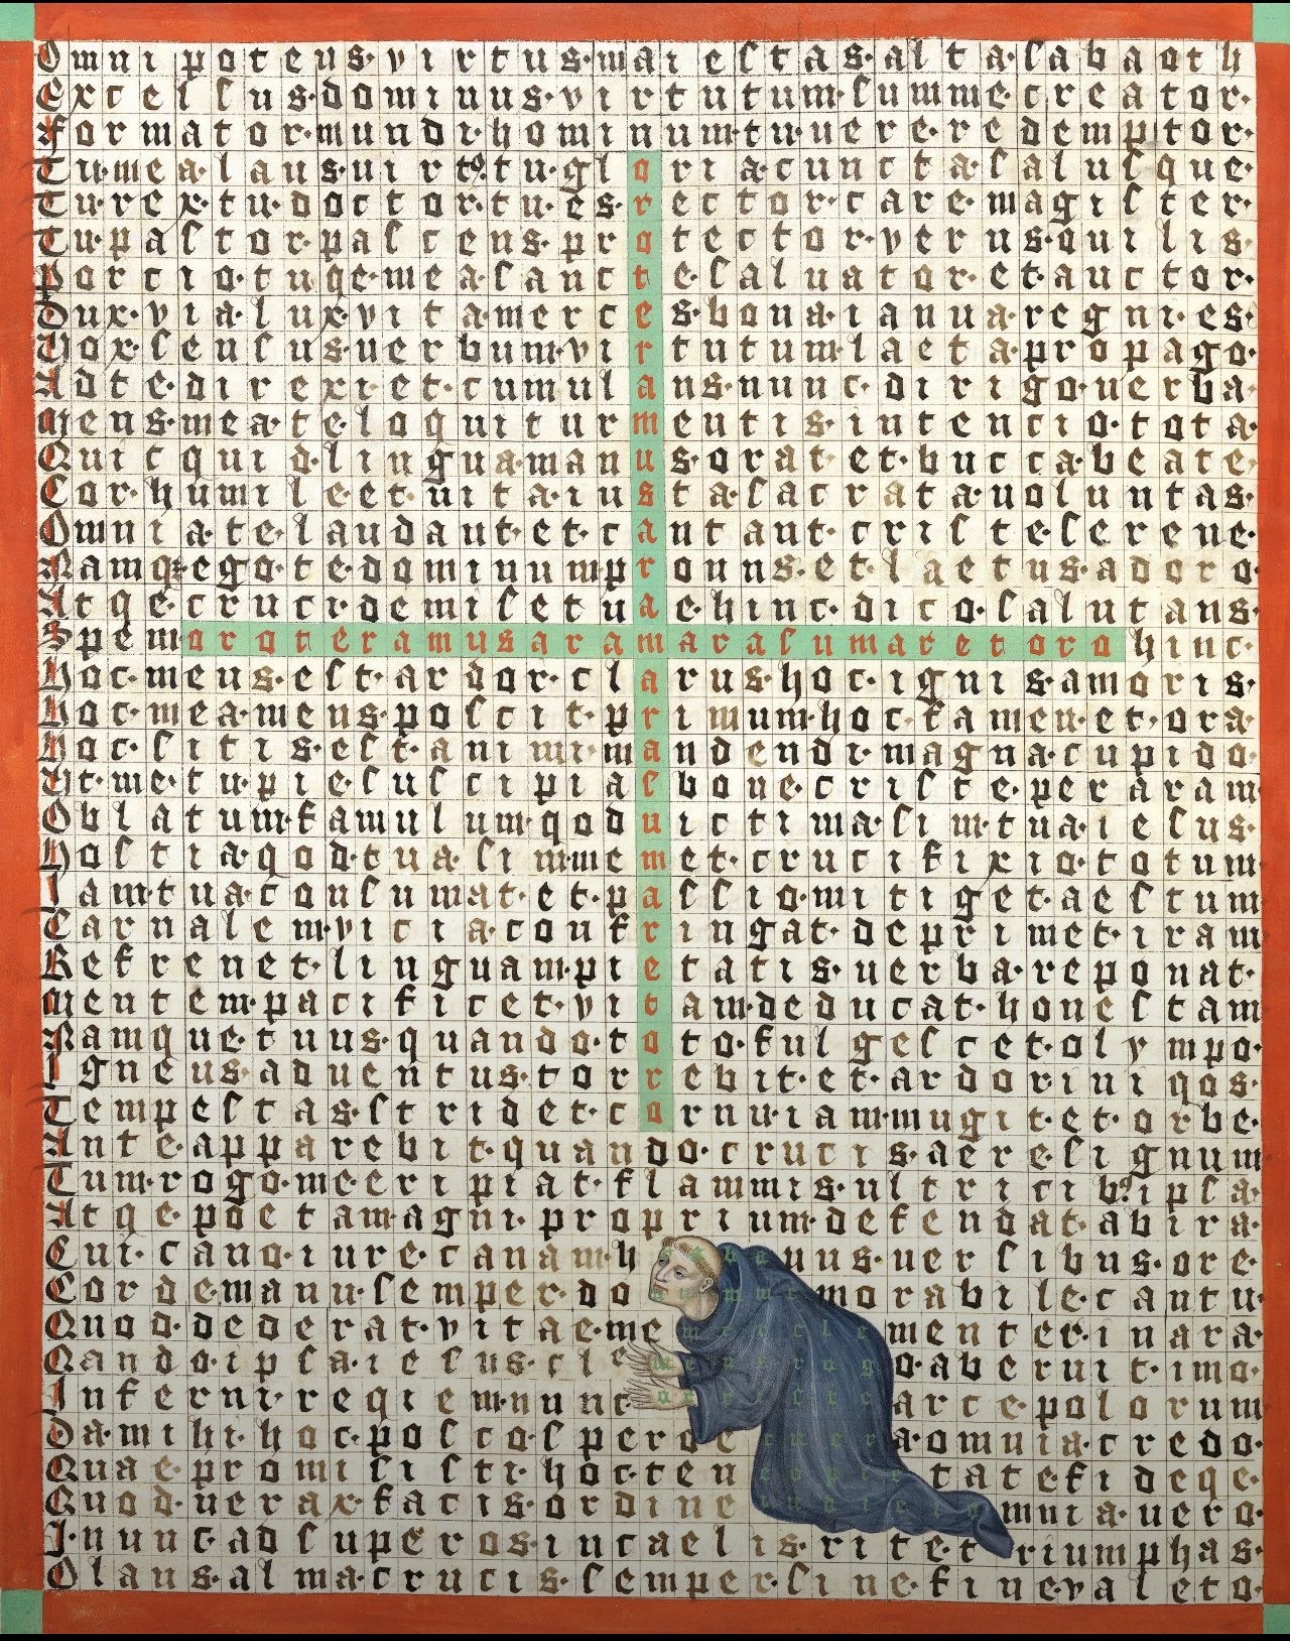 Omnipotens·virtus·maiestas·alta·sabaoth
Excelsus·dominus·virtutum·summe·creator·
Formator·mundi·hominum·tu·uere·redemptor·
Tu·mea·laus·uirt9·tu·gloria·cuncta·salusque·
Tu·rex·tu·doctor·tu·es·rector·care·magister·
Tu·pastor·pascens·protector·verus·ouilis·
Porcio·tuqe·mea·sancte·saluator·et·auctor·
Dux·via·lux·vita·merces·bona·ianua·regni·es·
Vox·sensus·uerbum·virtutum·laeta·propago·
Ad·te·direxi·et·cumulans·nunc·dirigo·uerba·
Mens·mea·te·loquitur·mentis·intencio·tota·
Quicquid·lingua·manus·orat·et·bucca·beate·
Cor·humile·et·uita·iusta·sacrata·uoluntas·
Omnia·te·laudant·et·cantant·criste·serene·
Namqe·ego·te·dominum·pronus·et·laetus·adoro·
Atqe·cruci·demisetuae·hinc·dico·salutans·
Spem oro te ramus aram ara sumar et oro hinc·
Hoc·meus·est·ardor·clarus·hoc·ignis·amoris·
Hoc·mea·mens·poscit·primum·hoc·famen·et·ora·
Hoc·sitis·est·animi·mandendi·magna·cupido·
Ut·me·tu·pie·suscipias·bone·criste·per·aram
Oblatum·famulum·qod·uictima·sim·tua·iesus·
Hostia·qod·tua·sim·memet·crucifixio·totum
Iam·tua·consumat·et·passio·mitiget·aestum
Carnalem·vicia·confringat·deprimet·iram
Refrenet·linguam·pietatis·uerba·reponat·
Mentem·pacificet·vitam·deducat·honestam
Namque·tuus·quando·toto·fulgescet·olympo·
Igneus·aduentus·torrebit·et·ardor·iniqos·
Tempestas·stridet·cornu·iam·mugit·et·orbe·
Ante·apparebit·quando·crucis·aere·signum
Tum·rogo·me·eripiat·flammis·ultricib9·ipsa·
Atqe·poetam·agni·proprium·defendat·ab·ira·
Cui·cano·iure·canam·hrabanus·uersibus·ore·
Corde·manu·semper·do memorabile·cantu·
Quod·dederat·vitae·me miserclementer·in·ara·
Qando·ipsa·iesus·cle mens·rogo·aberuit·imo·
Inferni·reqiem·nunc criste arce·polorum
Da·mihi·hoc·posco·spero a·omnia·credo·
Quae·promisisti·hoc·ten tatefideqe·
Quod·uerax·facis·ordine omnia·uero·
I·nunc·ad·superos·in·caelis·rite·triumphas·
O·laus·alma·crucis·semper·sine·fine·valeto·